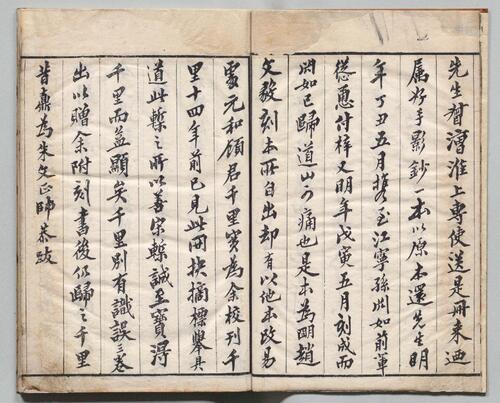 先生督漕淮上專使送是冊來迺
属好手影鈔一本以原本還先生明
年丁丑五月攜至江寧孫淵如前軰
慫恿付梓又明年戊寅五月刻成而
淵如已歸道山可痛也是本為明趙
文毅刻本所自出却有以他本改易
處元和顧君千里實為余校刊千
里十四年前已見此冊抉摘標舉具
道此槧之所以善宋槧誠至寶得
千里而益顯矣千里別有識誤三卷
出以贈余附刻書後仍歸之千里
昔鼒為朱文正師恭跋